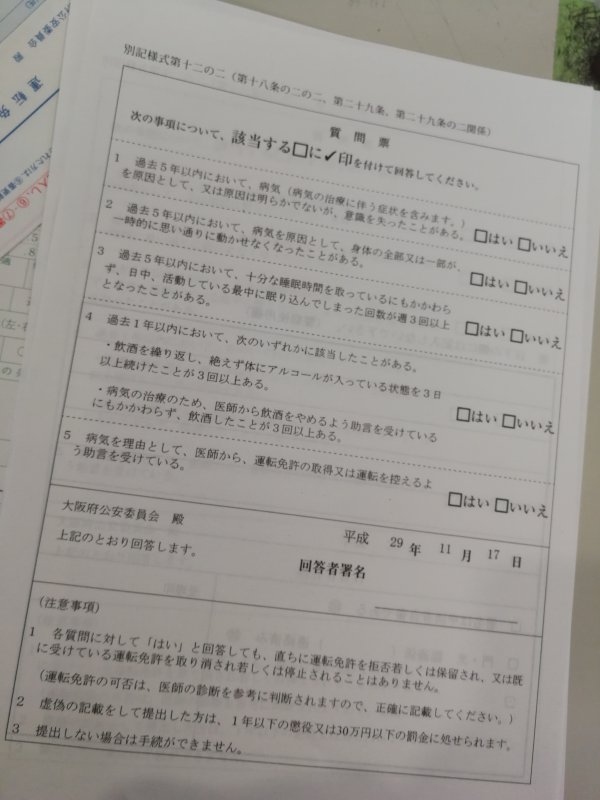 公安委員会 殿
運転免
別記様式第十二の二（第十八条の二の二、第二十九条、第二十九条の二関係）
質 問 票
次の事項について、該当する□に✓印を付けて回答してください。
1 過去５年以内において、病気（病気の治療に伴う症状を含みます。）
を原因として、又は原因は明らかでないが、意識を失ったことがある。 □はい □いいえ
2 過去５年以内において、病気を原因として、身体の全部又は一部が、
一時的に思い通りに動かせなくなったことがある。 □はい □いいえ
3 過去５年以内において、十分な睡眠時間を取っているにもかかわら
ず、日中、活動している最中に眠り込んでしまった回数が週３回以上
となったことがある。 □はい □いいえ
4 過去１年以内において、次のいずれかに該当したことがある。
・飲酒を繰り返し、絶えず体にアルコールが入っている状態を３日
以上続けたことが３回以上ある。 □はい □いいえ
・病気の治療のため、医師から飲酒をやめるよう助言を受けている
にもかかわらず、飲酒したことが３回以上ある。
5 病気を理由として、医師から、運転免許の取得又は運転を控えるよ
う助言を受けている。 □はい □いいえ
大阪府公安委員会 殿 平成 29 年 11 月 17 日
上記のとおり回答します。
回答者署名
（注意事項）
1 各質問に対して「はい」と回答しても、直ちに運転免許を拒否若しくは保留され、又は既
に受けている運転免許を取り消され若しくは停止されることはありません。
（運転免許の可否は、医師の診断を参考に判断されますので、正確に記載してください。）
2 虚偽の記載をして提出した方は、１年以下の懲役又は30万円以下の罰金に処せられます。
3 提出しない場合は手続ができません。